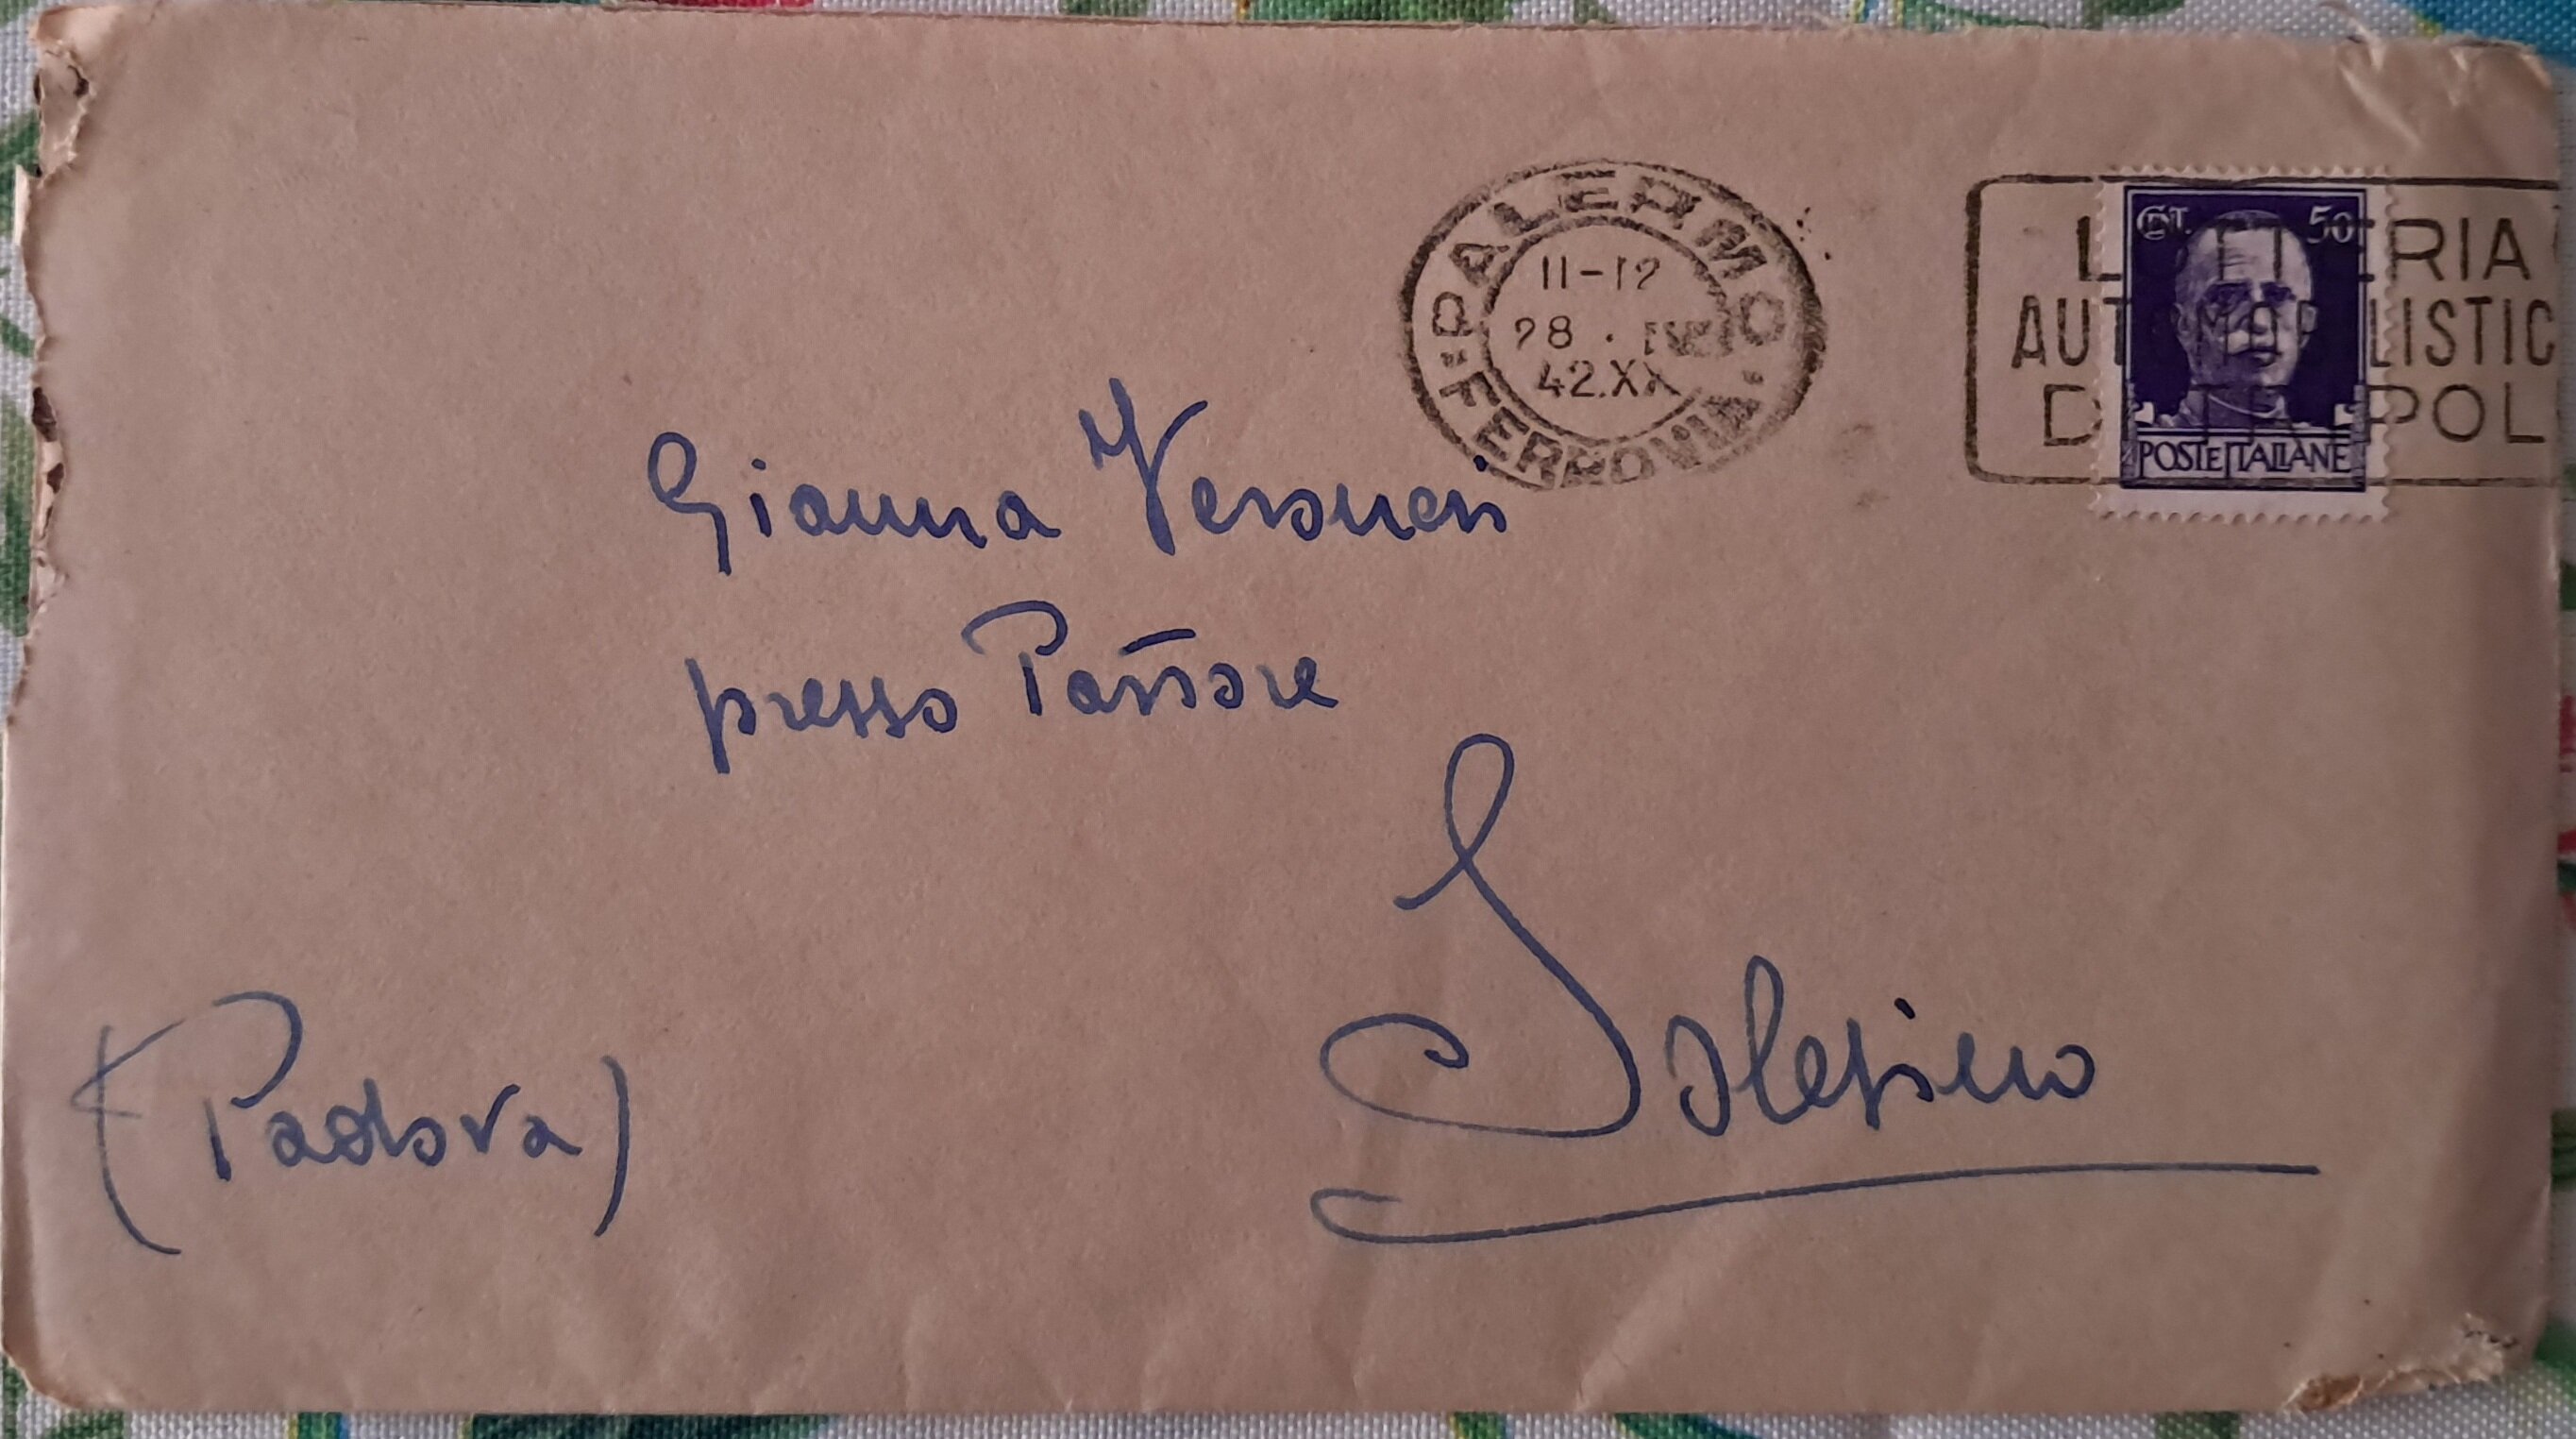 PALERMO
FERROVIA
11-12
28 .
42.XX
LOTTERIA
AUTOMOBILISTIC
DI TRIPOLI
CENT. 50
POSTE ITALIANE
Gianna Veronesi
presso Pastore
Solesino
(Padova)